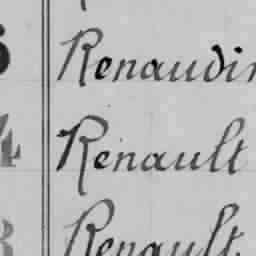 Renaudin
4 Renault
Renault